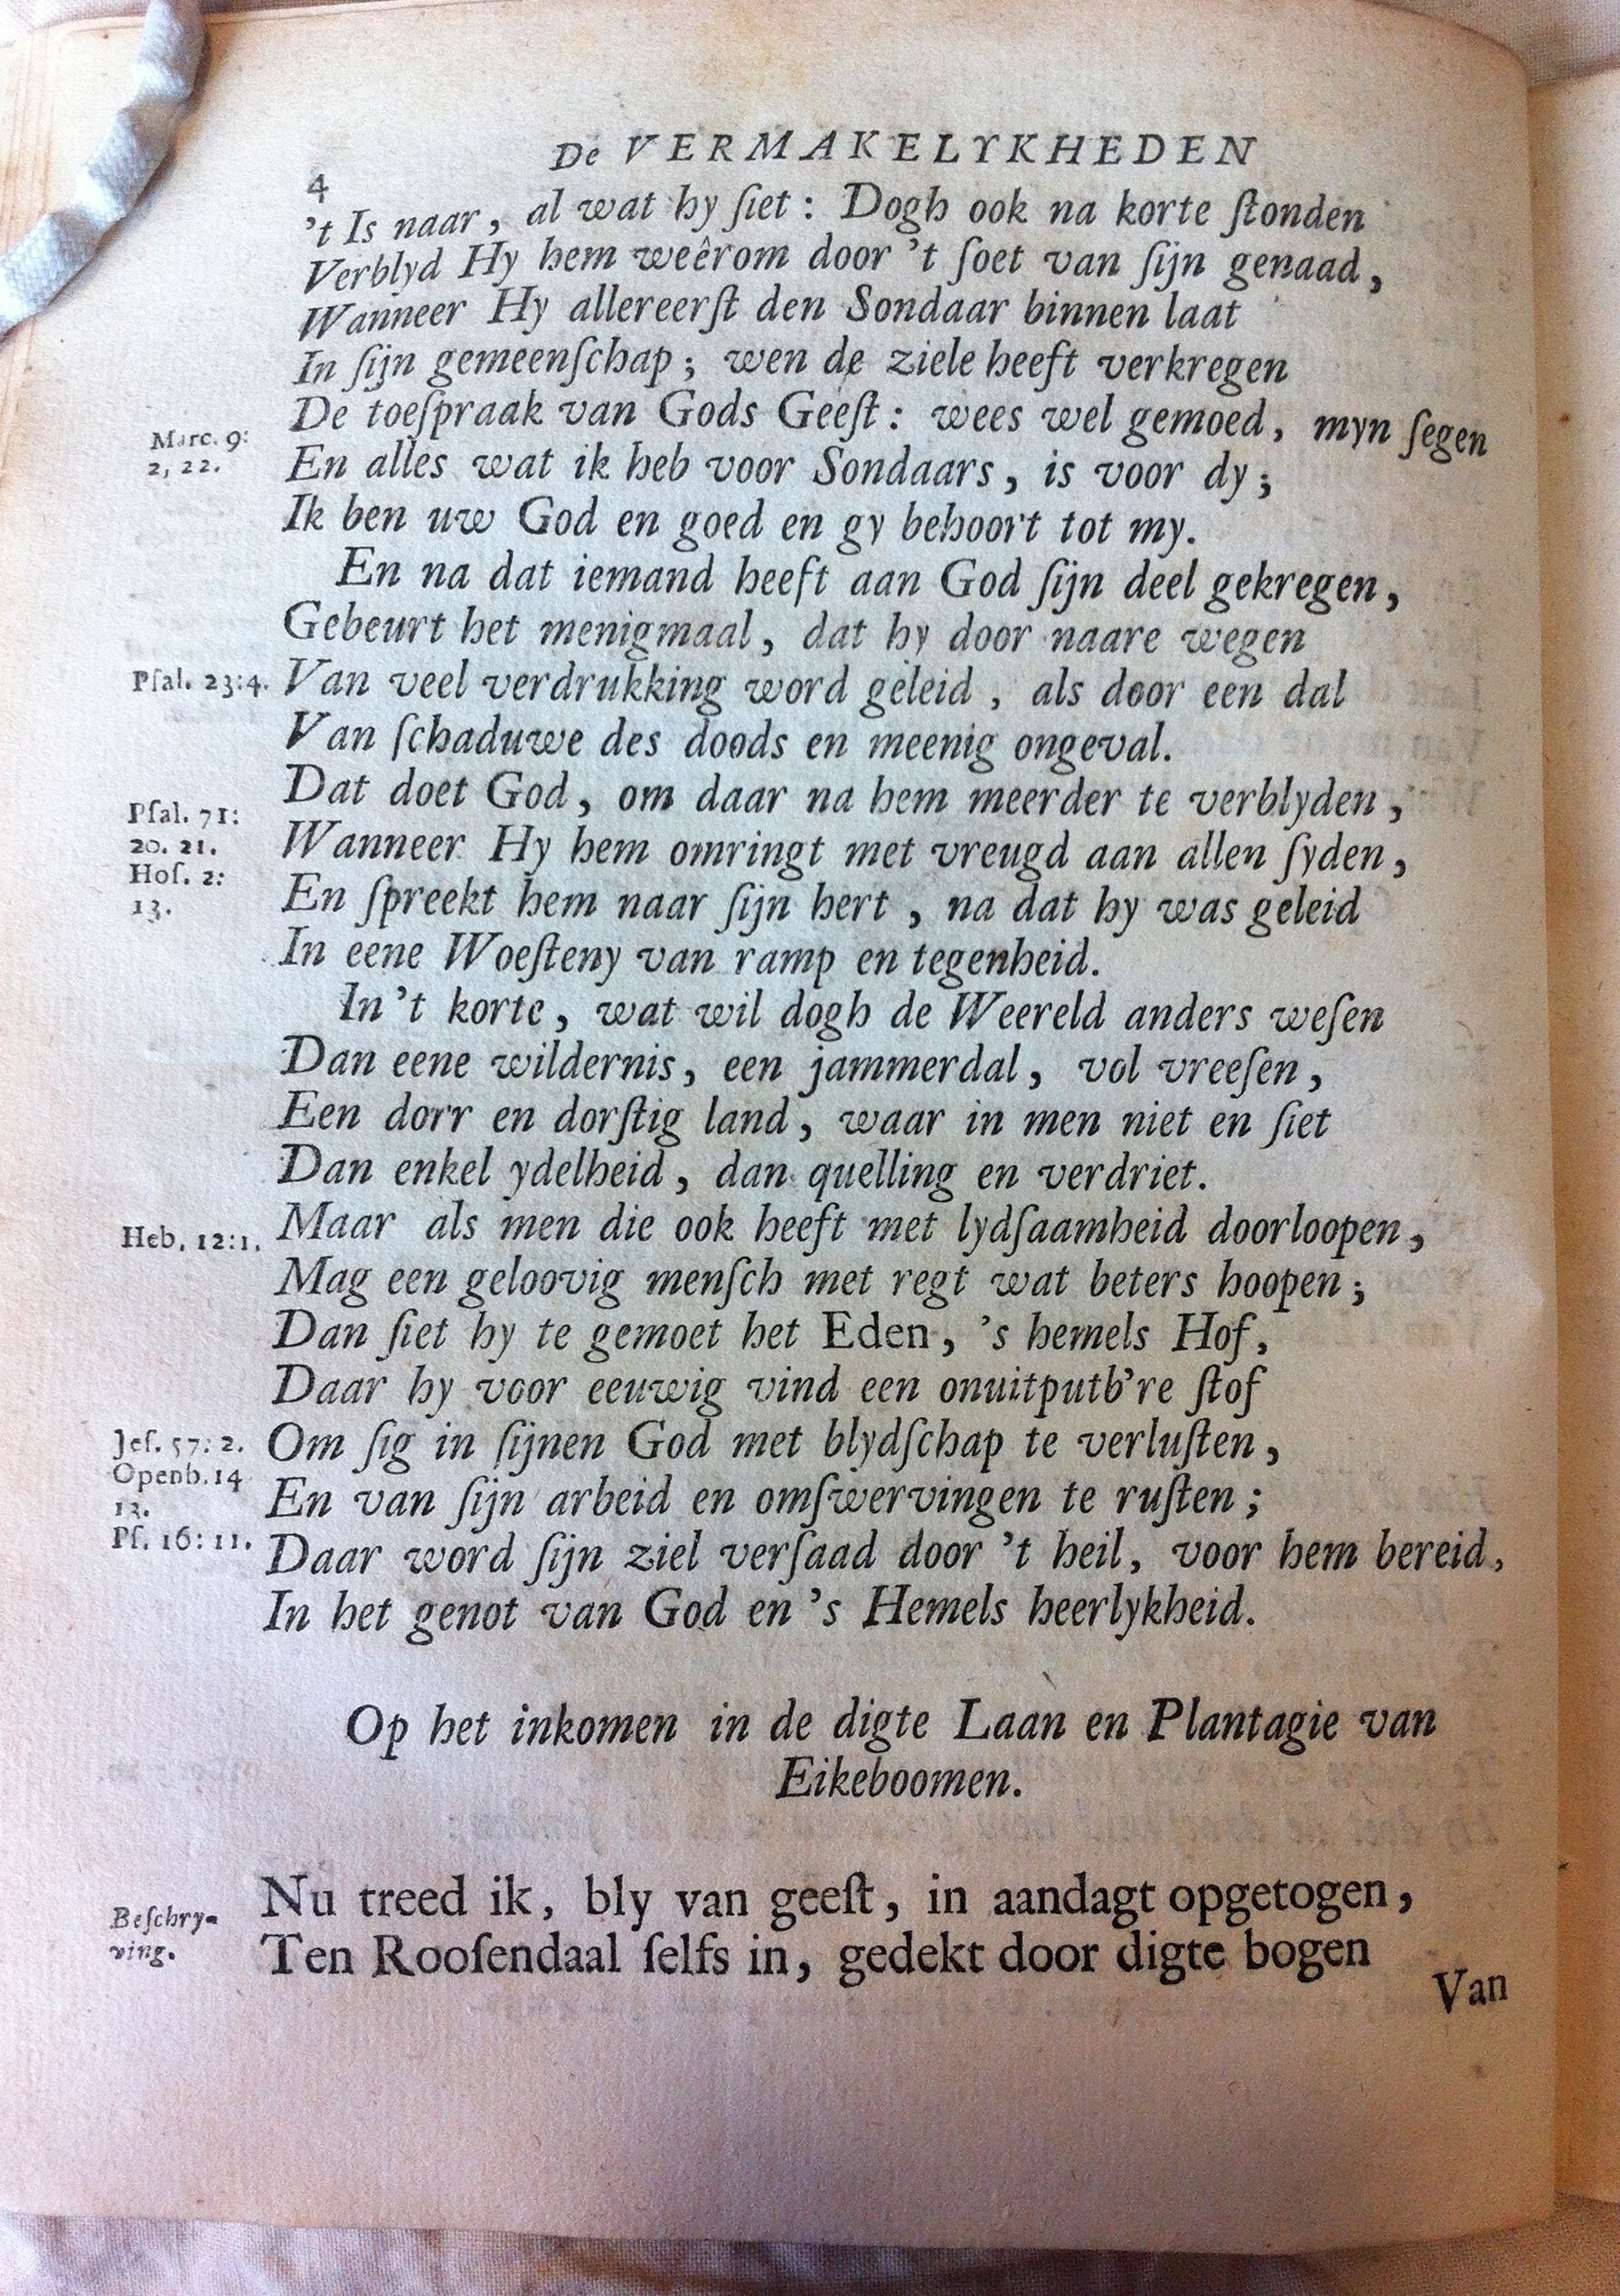 4
De VERMAKELYKHEDEN
't Is naar, al wat hy ſiet: Dogh ook na korte ſtonden
Verblyd Hy hem weêrom door 't ſoet van ſijn genaad,
Wanneer Hy allereerſt den Sondaar binnen laat
In ſijn gemeenſchap; wen de ziele heeft verkregen
De toeſpraak van Gods Geeſt: wees wel gemoed, myn ſegen
Marc. 9:
2, 22.
En alles wat ik heb voor Sondaars, is voor dy;
Ik ben uw God en goed en gy behoort tot my.
En na dat iemand heeft aan God ſijn deel gekregen,
Gebeurt het menigmaal, dat hy door naare wegen
Pſal. 23:4.
Van veel verdrukking word geleid, als door een dal
Van ſchaduwe des doods en meenig ongeval.
Dat doet God, om daar na hem meerder te verblyden,
Pſal. 71:
20. 21.
Hoſ. 2:
13.
Wanneer Hy hem omringt met vreugd aan allen ſyden,
En ſpreekt hem naar ſijn hert, na dat hy was geleid
In eene Woeſteny van ramp en tegenheid.
In 't korte, wat wil dogh de Weereld anders weſen
Dan eene wildernis, een jammerdal, vol vreeſen,
Een dorr en dorſtig land, waar in men niet en ſiet
Dan enkel ydelheid, dan quelling en verdriet.
Heb. 12:1.
Maar als men die ook heeft met lydſaamheid doorloopen,
Mag een geloovig menſch met regt wat beters hoopen;
Dan ſiet hy te gemoet het Eden, 's hemels Hof,
Daar hy voor eeuwig vind een onuitputb're ſtof
Jeſ. 57:2.
Openb. 14
13.
Pſ. 16:11.
Om ſig in ſijnen God met blydſchap te verluſten,
En van ſijn arbeid en omſwervingen te ruſten;
Daar word ſijn ziel verſaad door 't heil, voor hem bereid,
In het genot van God en 's Hemels heerlykheid.
Op het inkomen in de digte Laan en Plantagie van
Eikeboomen.
Beſchry-
ving.
Nu treed ik, bly van geeſt, in aandagt opgetogen,
Ten Rooſendaal ſelfs in, gedekt door digte bogen
Van